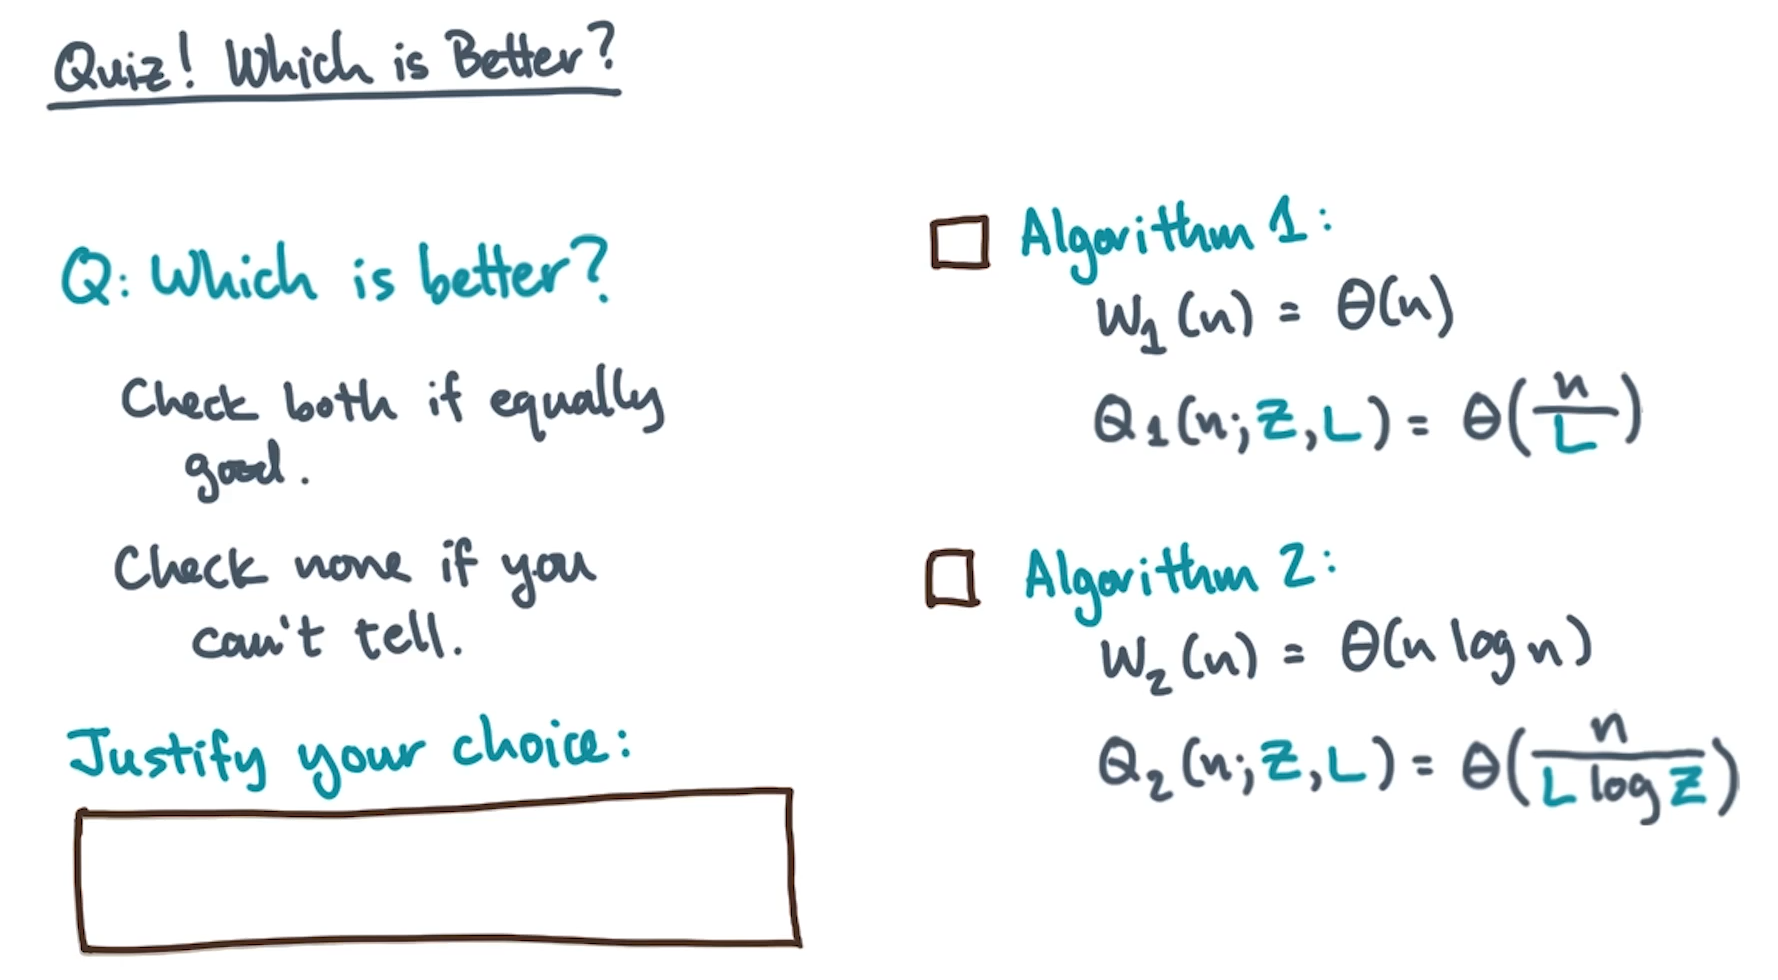 Quiz! Which is Better?
Q: Which is better?
Check both if equally
good.
Check none if you
can't tell.
Justify your choice:
Algorithm 1:
W₁(n) = Θ(n)
Q₁(n; Z, L) = Θ(n/L)
Algorithm 2:
W₂(n) = Θ(n log n)
Q₂(n; Z, L) = Θ(n/(L log Z))